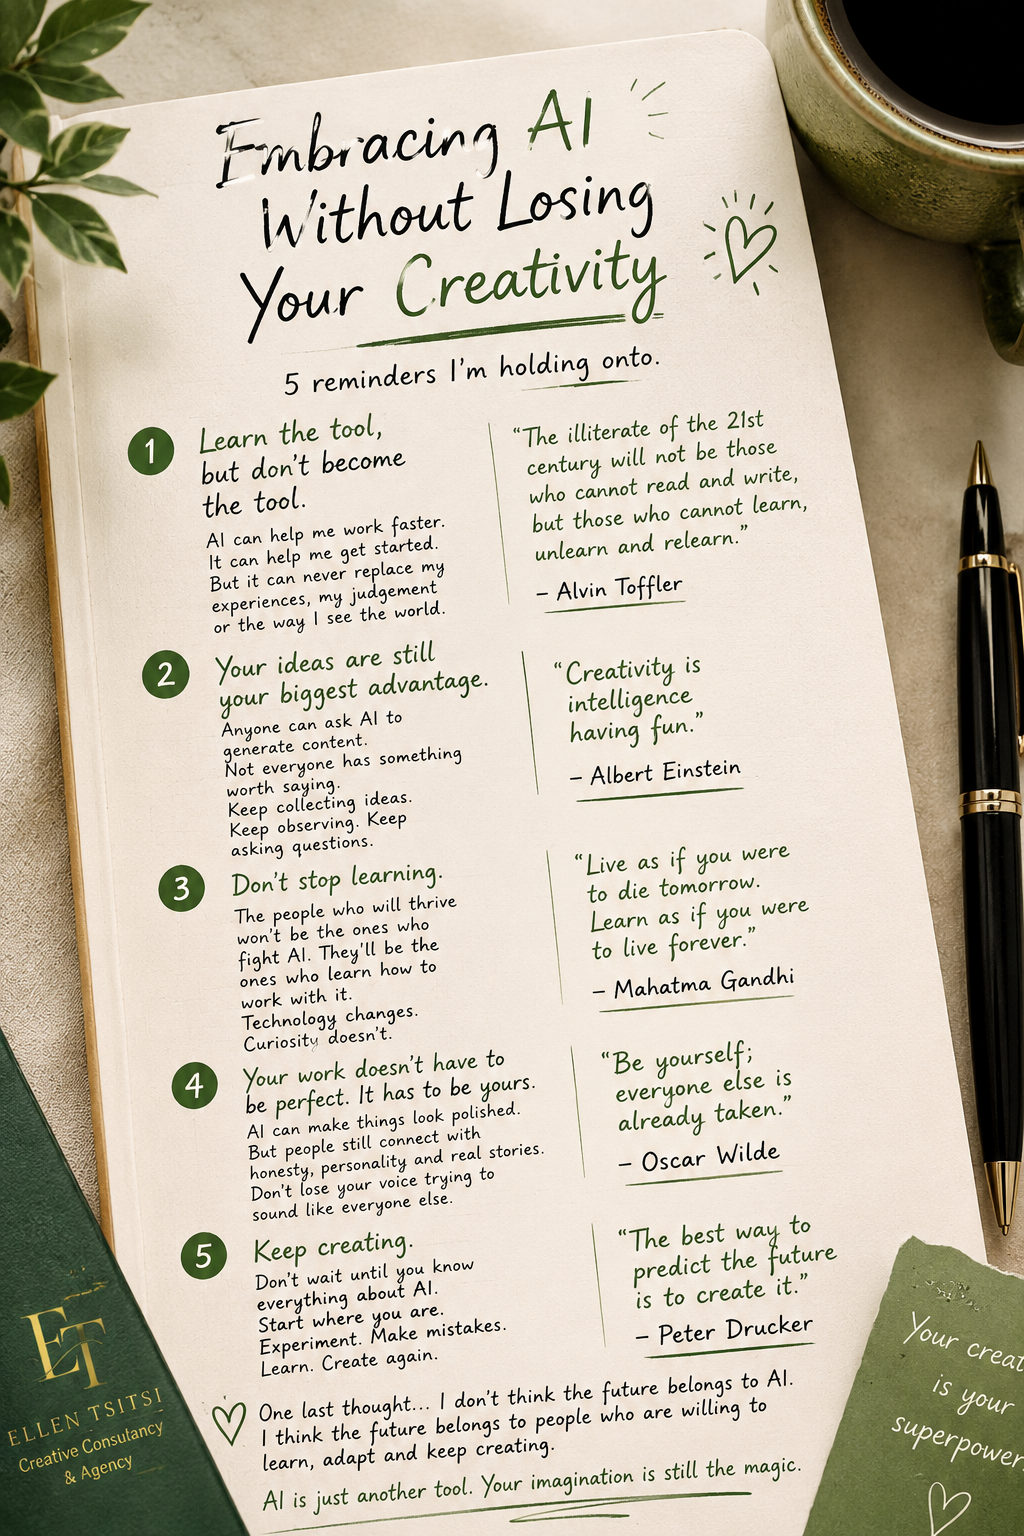 Embracing AI
Without Losing
Your Creativity
5 reminders I'm holding onto.
1
Learn the tool,
but don't become
the tool.
AI can help me work faster.
It can help me get started.
But it can never replace my
experiences, my judgement
or the way I see the world.
"The illiterate of the 21st
century will not be those
who cannot read and write,
but those who cannot learn,
unlearn and relearn."
– Alvin Toffler
2
Your ideas are still
your biggest advantage.
Anyone can ask AI to
generate content.
Not everyone has something
worth saying.
Keep collecting ideas.
Keep observing. Keep
asking questions.
"Creativity is
intelligence
having fun."
– Albert Einstein
3
Don't stop learning.
The people who will thrive
won't be the ones who
fight AI. They'll be the
ones who learn how to
work with it.
Technology changes.
Curiosity doesn't.
"Live as if you were
to die tomorrow.
Learn as if you were
to live forever."
– Mahatma Gandhi
4
Your work doesn't have to
be perfect. It has to be yours.
AI can make things look polished.
But people still connect with
honesty, personality and real stories.
Don't lose your voice trying to
sound like everyone else.
"Be yourself;
everyone else is
already taken."
– Oscar Wilde
5
Keep creating.
Don't wait until you know
everything about AI.
Start where you are.
Experiment. Make mistakes.
Learn. Create again.
"The best way to
predict the future
is to create it."
– Peter Drucker
One last thought... I don't think the future belongs to AI.
I think the future belongs to people who are willing to
learn, adapt and keep creating.
AI is just another tool. Your imagination is still the magic.
ET
ELLEN TSITSI
Creative Consulancy
& Agency
Your creat
is your
superpower